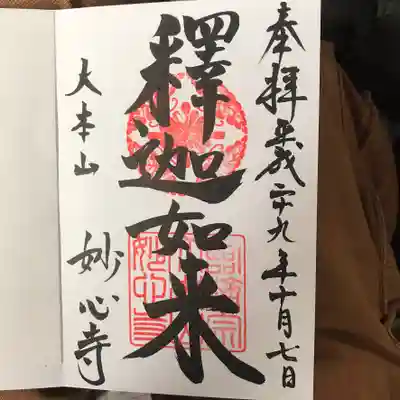 奉拝 平成二十九年十月七日
釋迦如来
大本山 妙心寺